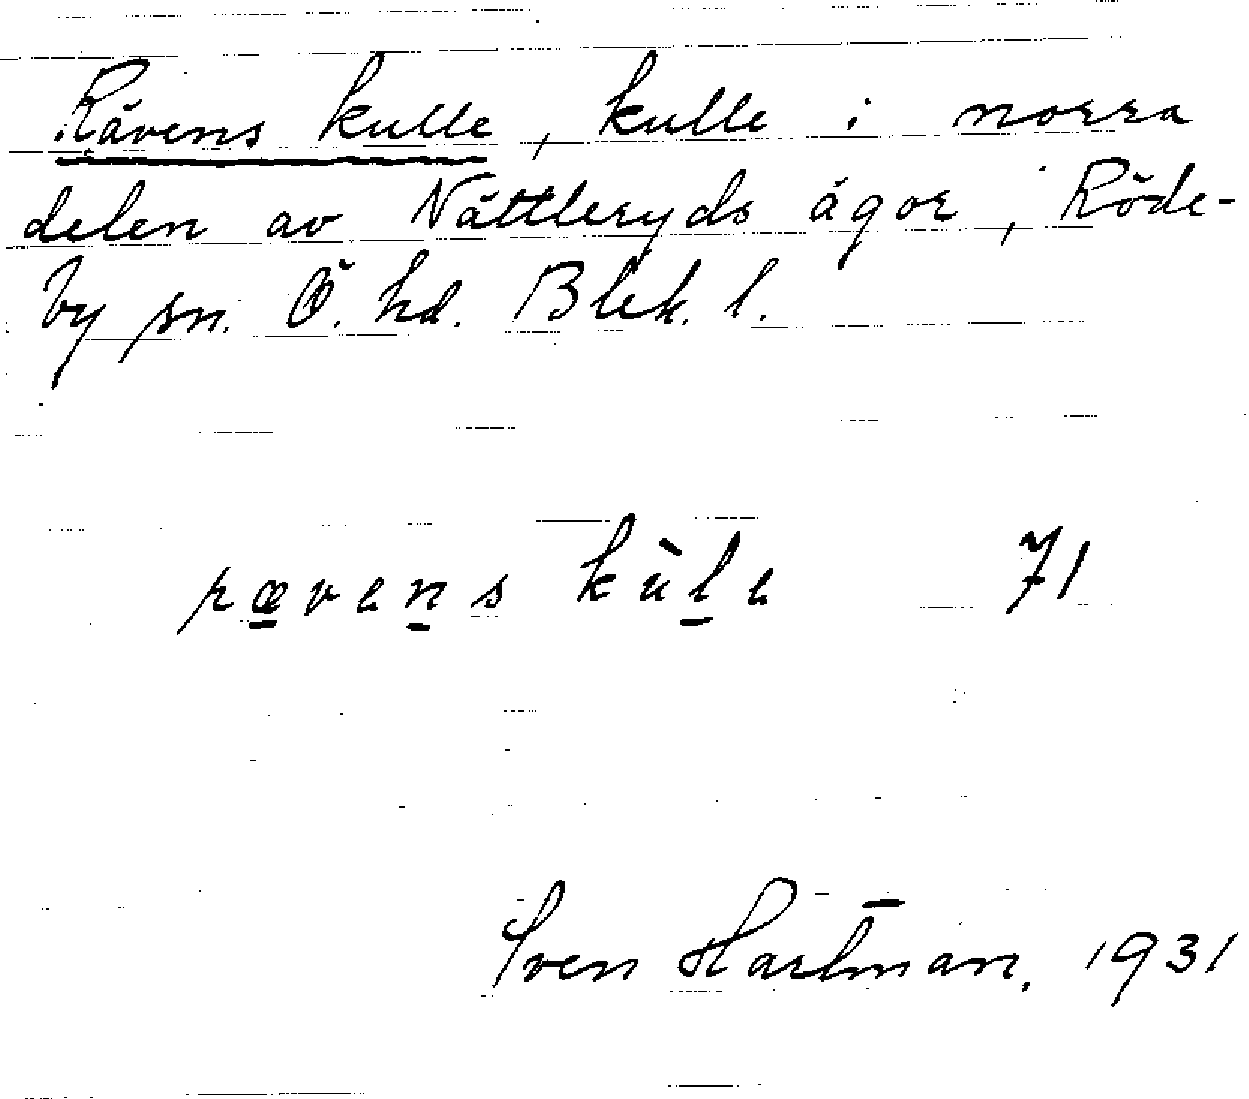 Rävens kulle, kulle i norra
delen av Nättleryds ägor, Röde-
by sn. Ö. hd. Blek. l.
rævens kùle 71
Sven Hartman. 1931